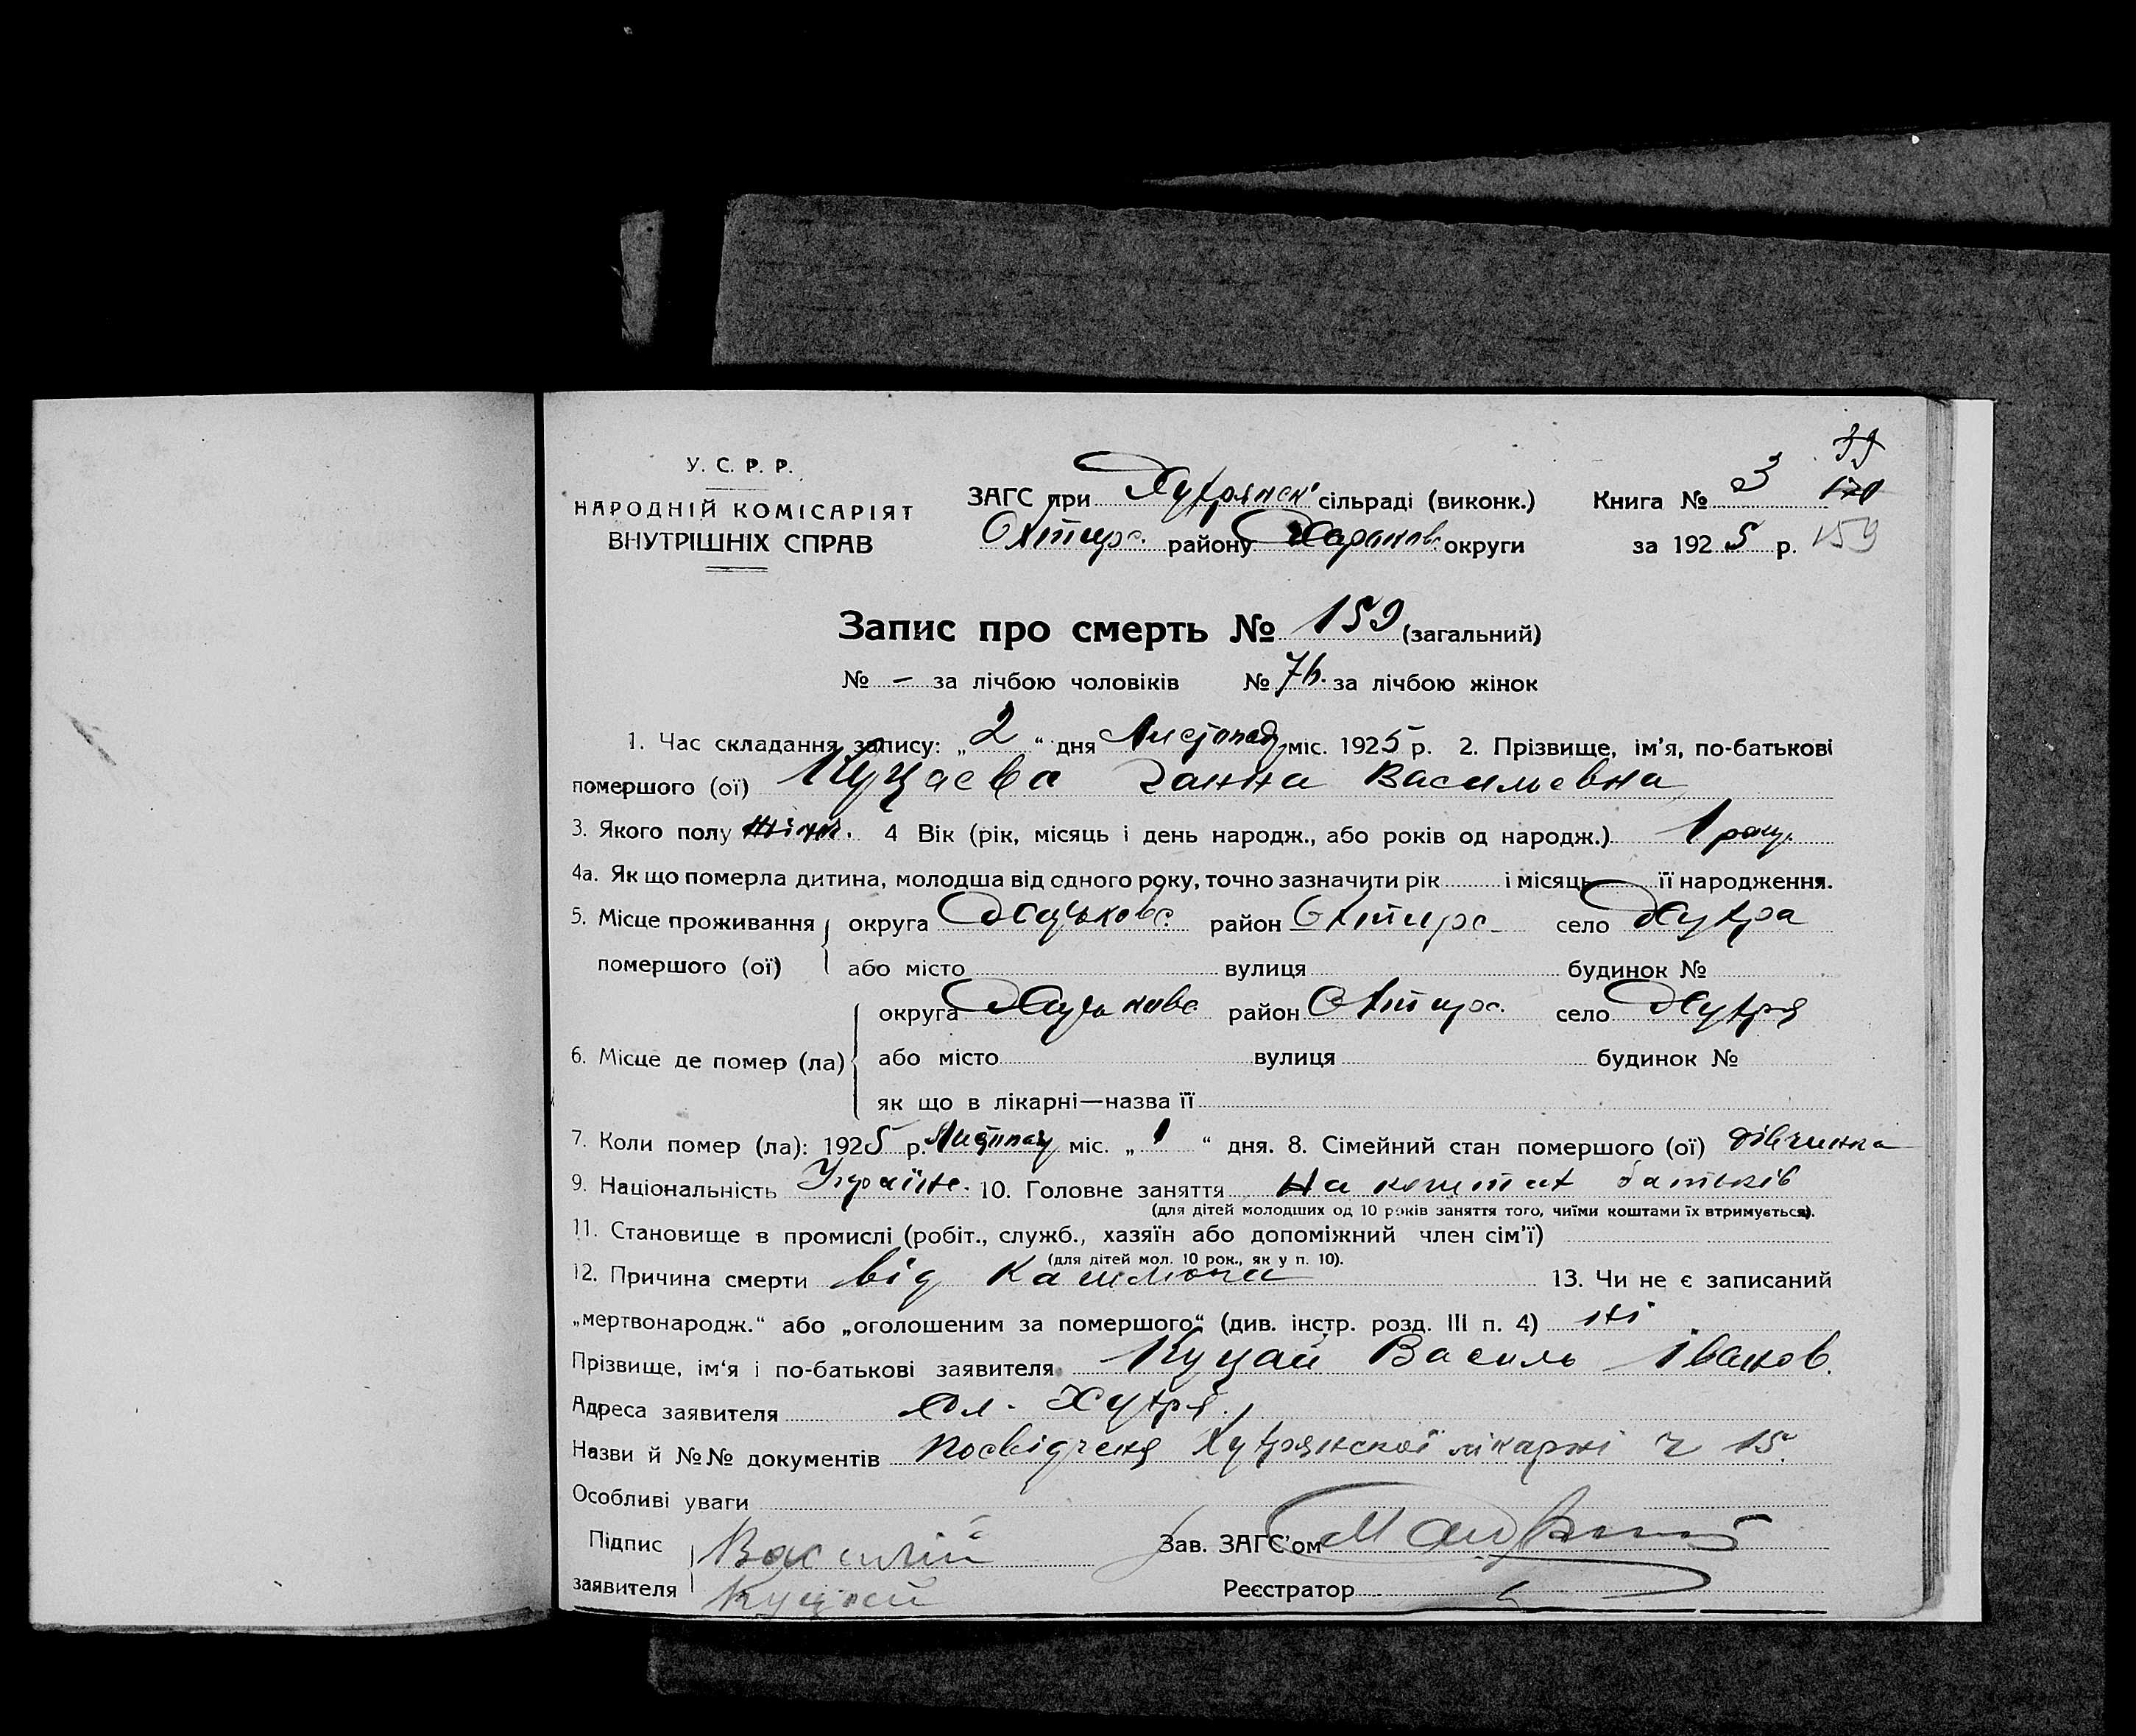 У. С. Р. Р.
НАРОДНІЙ КОМІСАРІЯТ
ВНУТРІШНІХ СПРАВ
ЗАГС при Хухрянск. сільраді (виконк.)
Охтирс. району Харьков. округи
Книга № 3
за 1925 р. 159
Запис про смерть № 159 (загальний)
№ — за лічбою чоловіків № 76. за лічбою жінок
1. Час складання запису: „2“ дня Листопаду міс. 1925 р. 2. Прізвище, ім'я, по-батькові
помершого (ої) Куцаева Ганна Васильевна
3. Якого полу жіноч. 4 Вік (рік, місяць і день народж., або років од народж.) 1 року.
4а. Як що померла дитина, молодша від одного року, точно зазначити рік і місяць її народження.
5. Місце проживання округа Харьковс. район Охтирс. село Хухра
помершого (ої) або місто вулиця будинок №
округа Харьковс район Охтирс. село Хухря
6. Місце де помер (ла) або місто вулиця будинок №
як що в лікарні—назва її
7. Коли помер (ла): 1925 р. Листопаду міс. „1“ дня. 8. Сімейний стан помершого (ої) дівчинка
9. Національність Україне. 10. Головне заняття На коштах батьків
(для дітей молодших од 10 років заняття того, чиїми коштами їх втримується).
11. Становище в промислі (робіт., служб., хазяїн або допоміжний член сім'ї)
(для дітей мол. 10 рок., як у п. 10).
12. Причина смерти від Кашлюка 13. Чи не є записаний
„мертвонародж.“ або „оголошеним за помершого“ (див. інстр. розд. III п. 4) ні
Прізвище, ім'я і по-батькові заявителя Куцай Василь Іванов.
Адреса заявителя сл. Хухря.
Назви й №№ документів Посвідченя Хухрянскої лікарні ч 15.
Особливі уваги
Підпис Василій Зав. ЗАГС'ом
заявителя Куцай Реєстратор